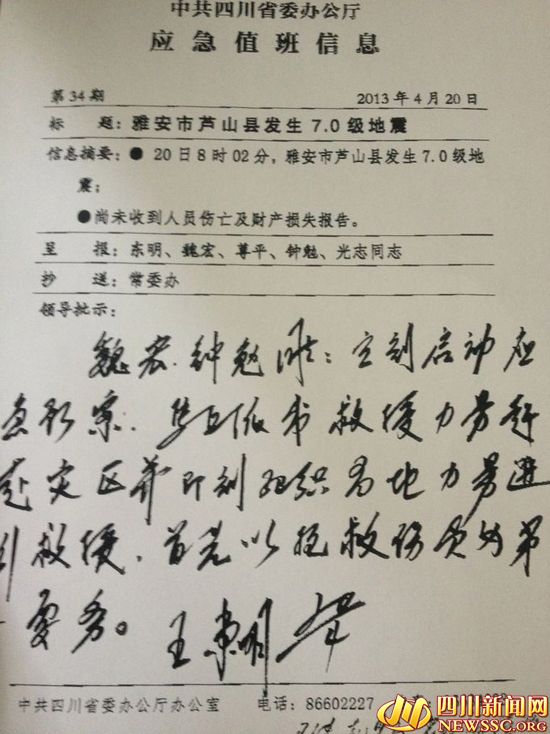 中共四川省委办公厅
应急值班信息
第34期 2013年4月20日
标 题：雅安市芦山县发生7.0级地震
信息摘要：● 20日8时02分，雅安市芦山县发生7.0级地
震；
●尚未收到人员伤亡及财产损失报告。
呈 报：东明、魏宏、尊平、钟勉、光志同志
抄 送：常委办
领导批示：
魏宏、钟勉：立刻启动应
急预案. 救援力量赶
赴灾区并即刻组织当地力量进
行救援，首先以抢救伤员为第
一要务。王东明
中共四川省委办公厅办公室 电话：86602227
四川新闻网
NEWSSC.ORG